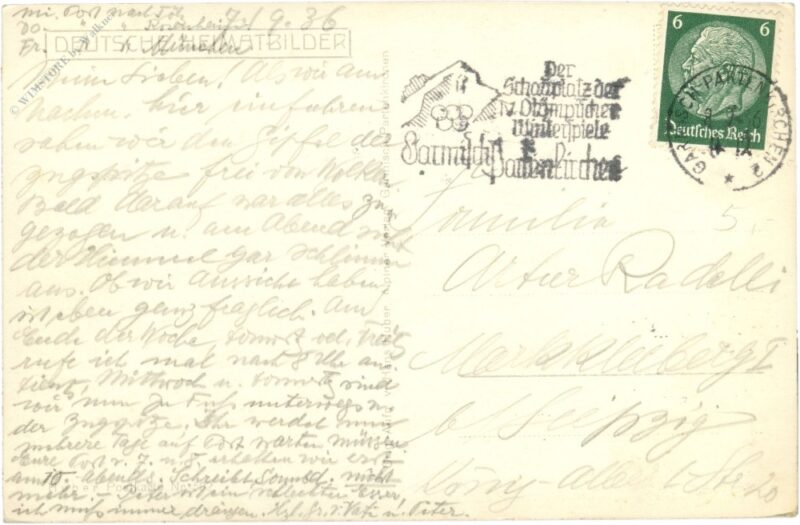 mi. Post nach Tölz
Do. " " Rosenheim
Fr. " " München
7./9. 36
DEUTSCHE HEIMATBILDER
Meine Lieben! Als wir am
hier einfuhren
sahen wir den Gipfel der
Zugspitze frei von Wolken
Bald darauf war alles zu
gezogen u. am Abend sah
der Himmel gar schlimm
aus. Ob wir Aussicht haben
ist eben ganz fraglich. Am
Ende der Woche, Donnerst. od. Freit.
rufe ich mal nach 8 Uhr an.
Dienst, Mittwoch u. Donnerst sind
wir nun zu Fuß unterwegs
der Zugspitze. Ihr werdet nun
mehrere Tage auf Post warten müssen
Eure Post v. 7. u. 8. erhalten wir erst
am 10. abends. Schreibt Sonnabd. nicht
mehr. – Peter ist ein schlechter Esser,
ich muß immer drängen. Hzl. Gr. v. Vati u. Peter.
Der
Schauplatz der
IV. Olympischen
Winterspiele
Garmisch
Partenkirchen
6 6
Deutsches Reich
GARMISCH-PARTENKIRCHEN 2
Familie
Artur Radelli
Markkleeberg I
b/ Leipzig
König-Albert-Str. 20
5.-
© WIMSTORE by Falkner